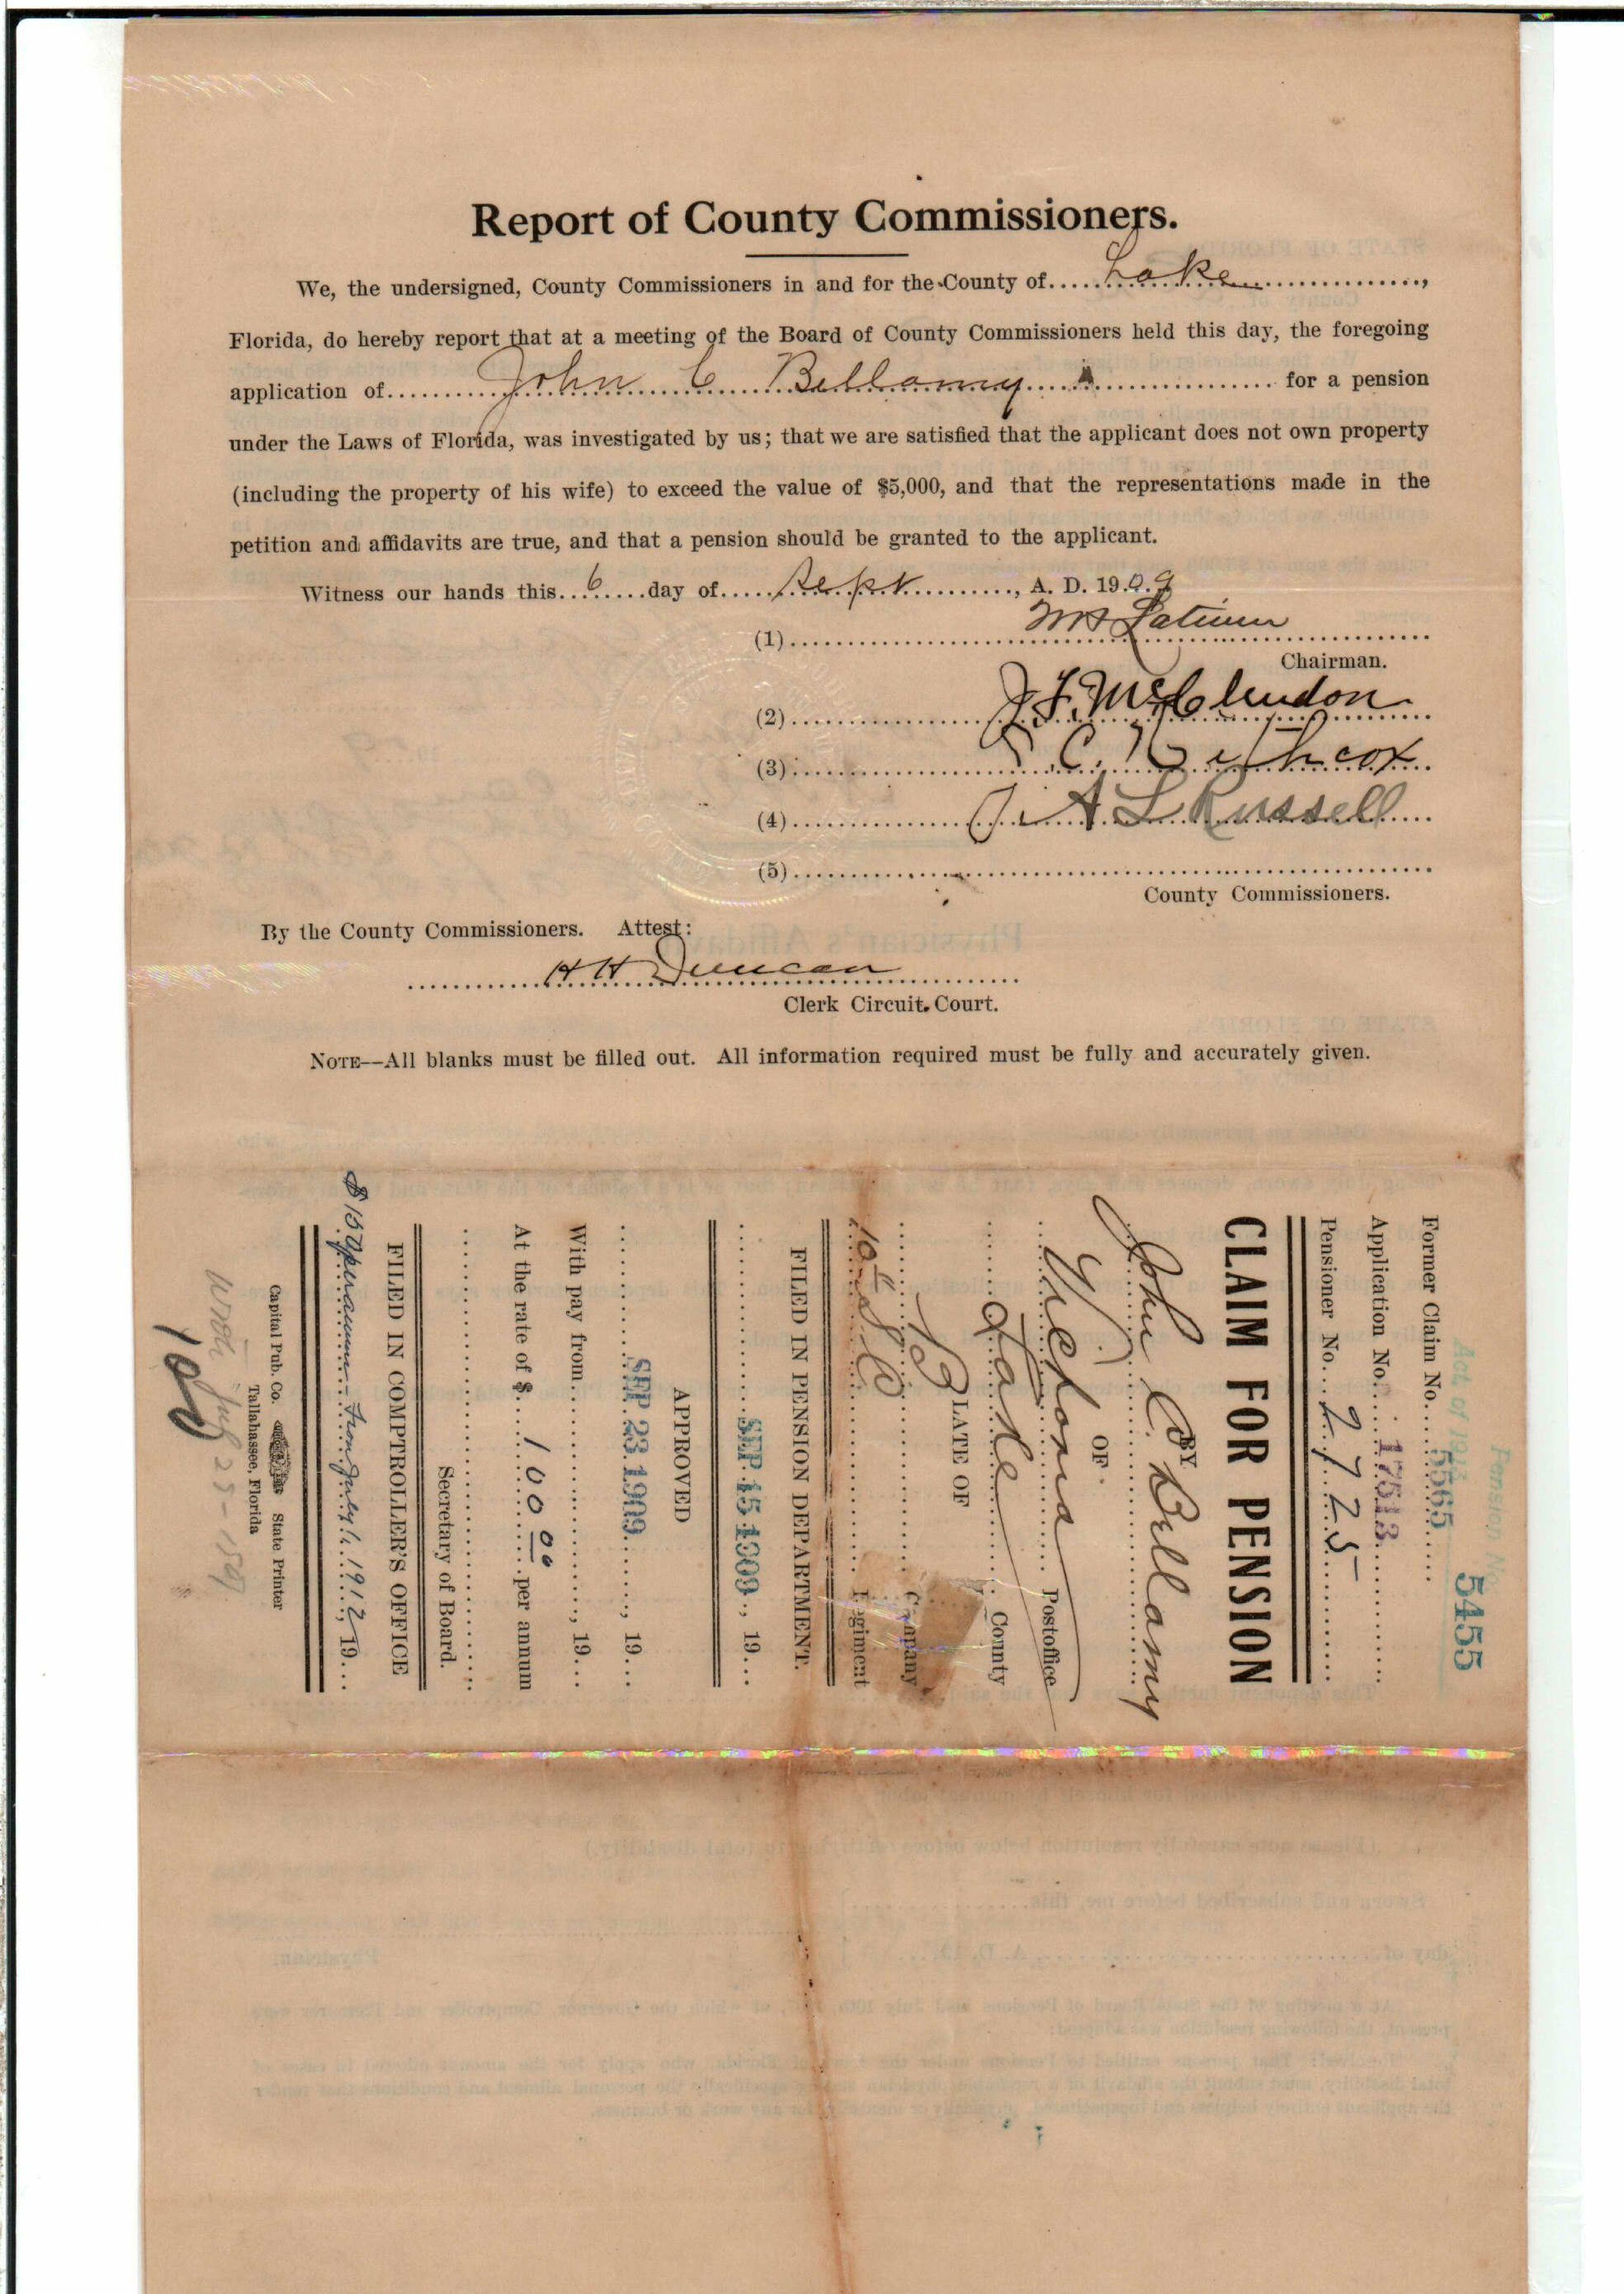 Report of County Commissioners.
We, the undersigned, County Commissioners in and for the County of Lake,
Florida, do hereby report that at a meeting of the Board of County Commissioners held this day, the foregoing
application of John C Bellamy for a pension
under the Laws of Florida, was investigated by us; that we are satisfied that the applicant does not own property
(including the property of his wife) to exceed the value of $5,000, and that the representations made in the
petition and affidavits are true, and that a pension should be granted to the applicant.
Witness our hands this 6 day of Sept, A. D. 1909
(1)
Chairman.
(2) J F. McClendon
(3)
(4) Russell
(5)
County Commissioners.
By the County Commissioners. Attest:
H H Duncan
Clerk Circuit Court.
NOTE—All blanks must be filled out. All information required must be fully and accurately given.
Pension No.
5455
Act of 1913
Former Claim No. 5565
Application No. 17513
Pensioner No. 2725
CLAIM FOR PENSION
BY
John C. Bellamy
OF
Postoffice
Lake County
LATE OF
B Company
10th S C Regiment
FILED IN PENSION DEPARTMENT.
SEP 15 1909, 19
APPROVED
SEP 23 1909, 19
With pay from, 19
At the rate of $ 100 00 per annum
Secretary of Board.
FILED IN COMPTROLLER'S OFFICE
$150 per annum from July 1, 1912, 19
Capital Pub. Co. State Printer
Tallahassee, Florida